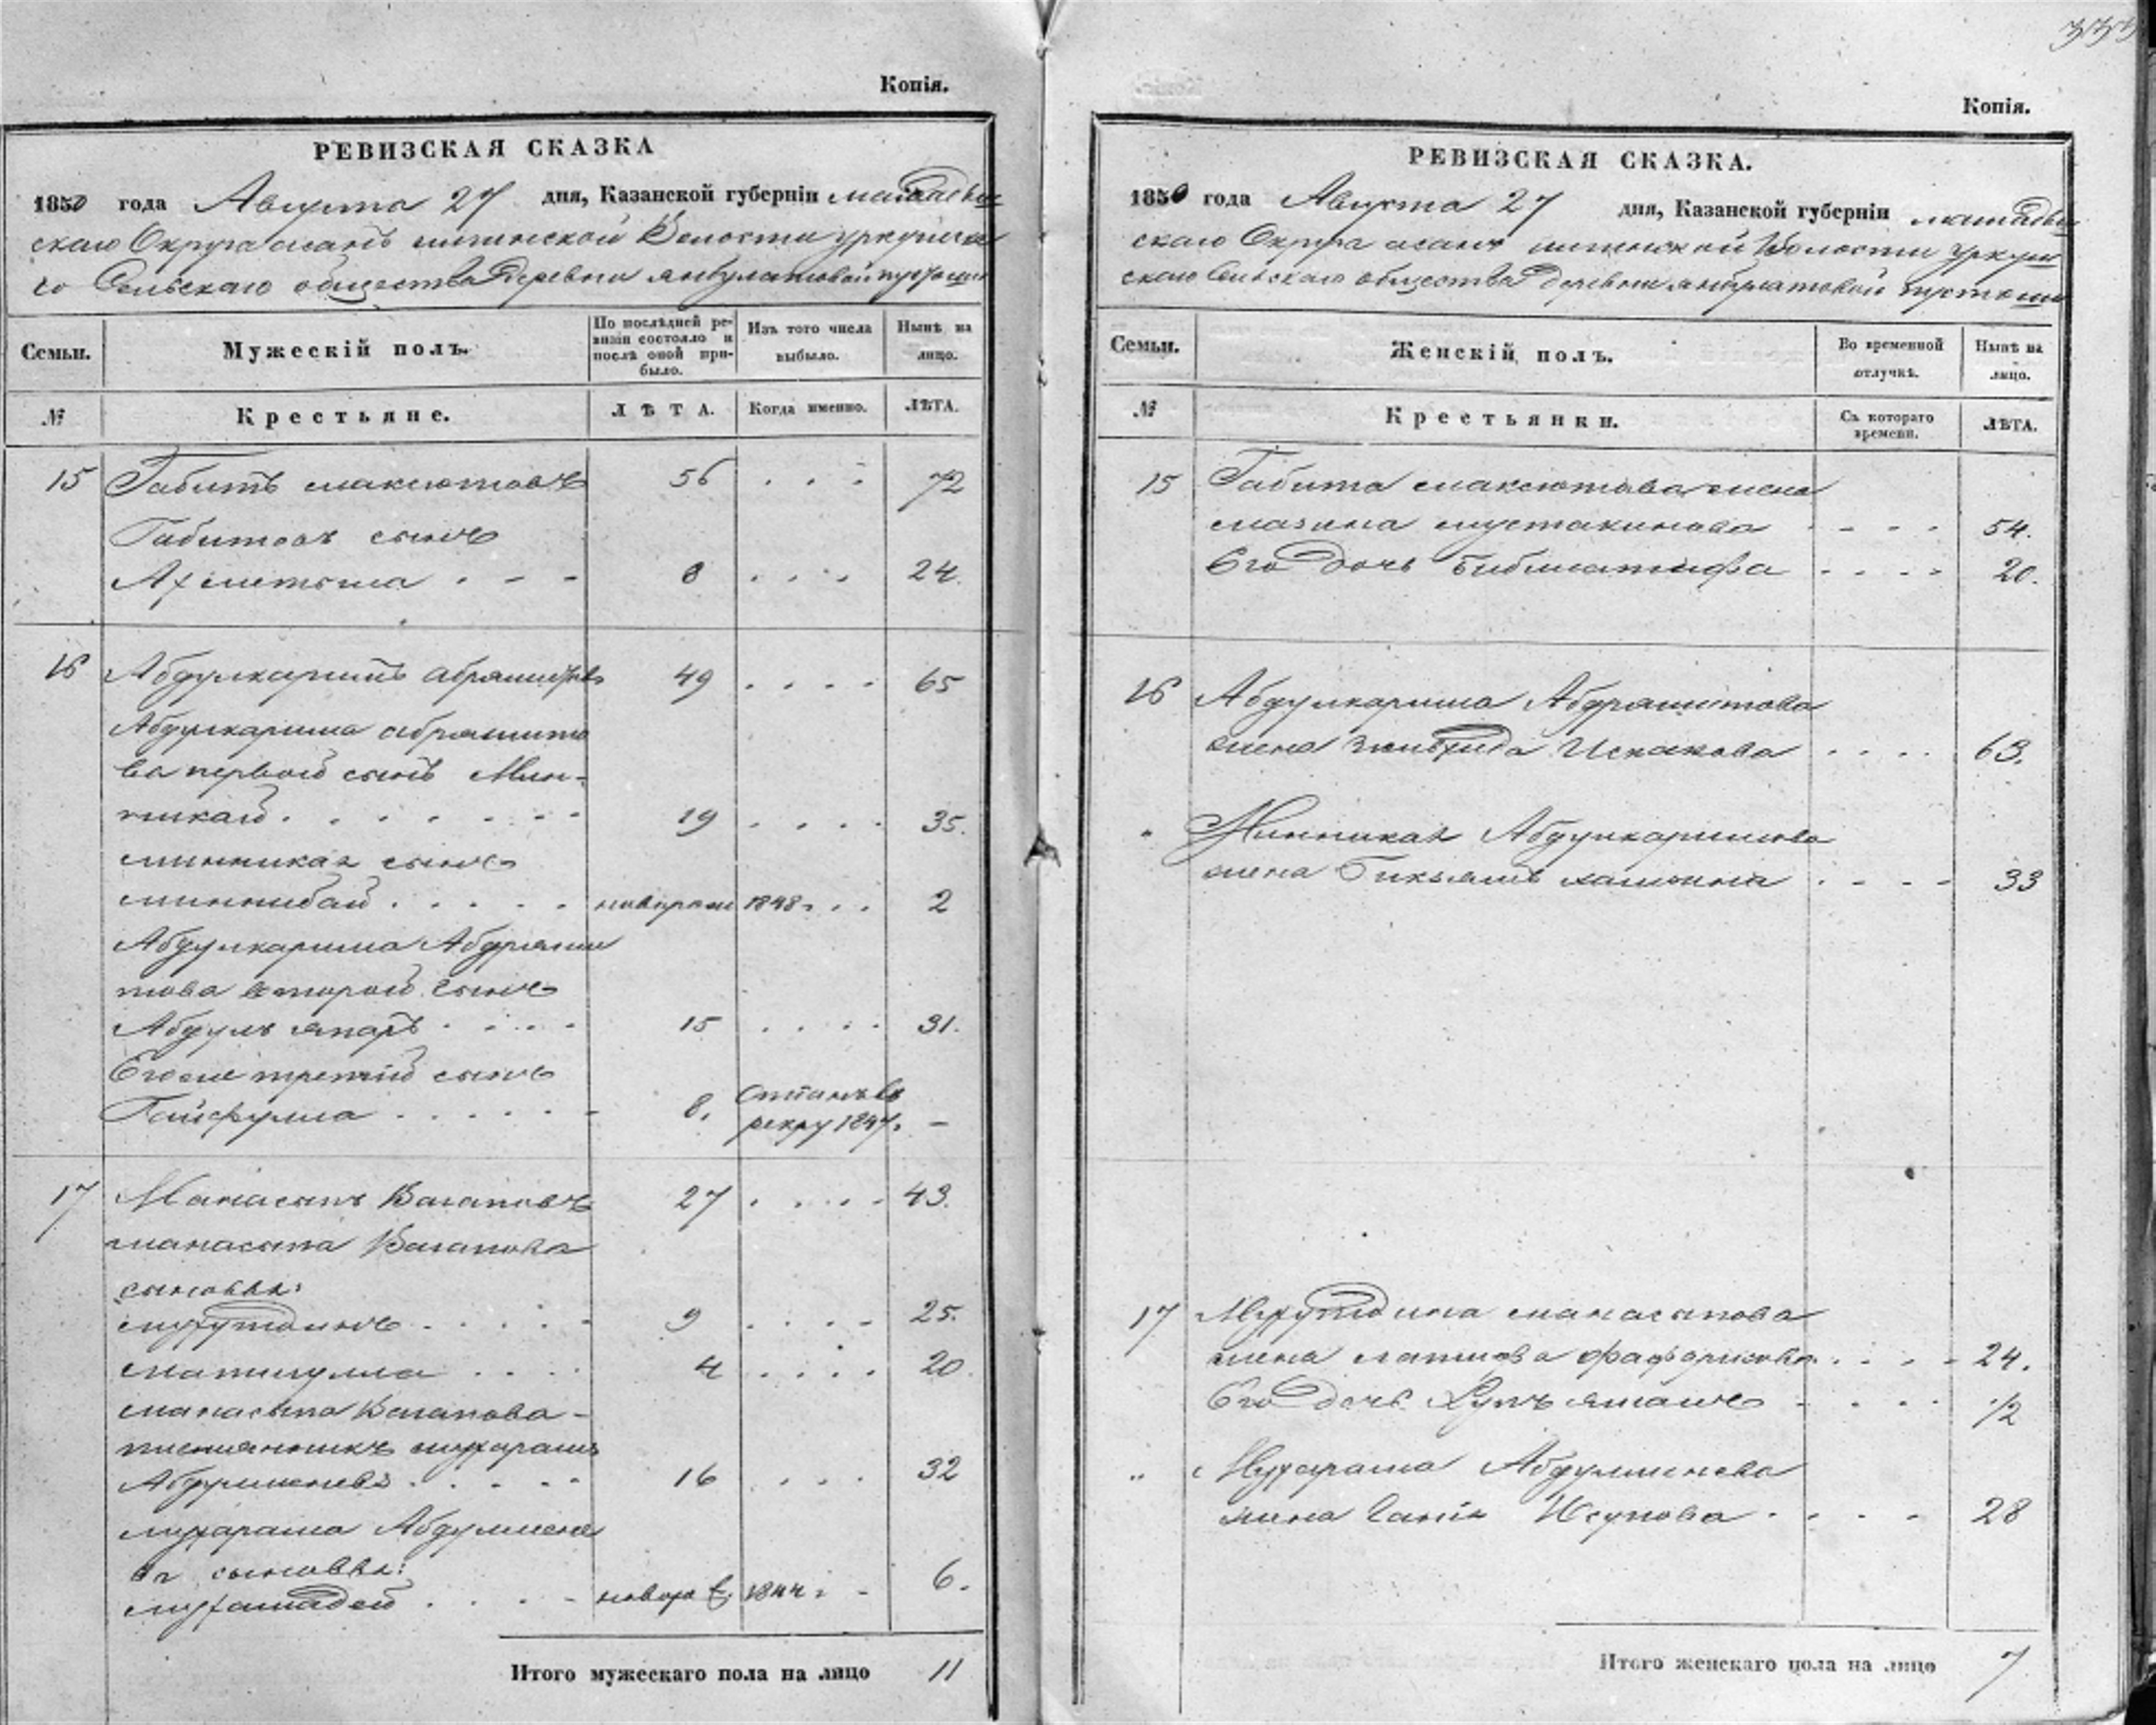 333
Копія.
РЕВИЗСКАЯ СКАЗКА
1850 года Августа 27 дня, Казанской губерніи мамадыш
скаго Округа асанъ илгинской Волости уркушска
го Сельскаго общества Деревни янбулатовой пустоши
Семьи.
Мужескій полъ.
По послѣдней ре-
визіи состояло и
послѣ оной при-
было.
Изъ того числа
выбыло.
Нынѣ на
лицо.
№
Крестьяне.
ЛѢТА.
Когда именно.
ЛѢТА.
15 Габитъ максютовъ 56 72
Габитовъ сынъ
Ахметьша 8 24.
16 Абдулкаримъ абряшитовъ 49 65
Абдулкарима абряшито
ва первой сынъ Мин-
никай 19 35.
минникая сынъ
миннибай новорож 1848 2
Абдулкарима Абдряши
това второй сынъ
Абдулъ япаръ 15 31.
Егоже третій сынъ
Гайфулла 8. Отданъ въ
рекру 1847. -
17 Манасыпъ Вагаповъ 27 43.
манасыпа Вагапова
сыновья:
мухутдинъ 9 25.
матигулла 4 20.
манасыпа Вагапова
племянникъ мухарямъ
Абдулменевъ 16 32
мухаряма Абдулмене
ва сыновья:
мухамадей новоро 1844 6.
Итого мужескаго пола на лицо 11
Копія.
РЕВИЗСКАЯ СКАЗКА.
1850 года Августа 27 дня, Казанской губерніи мамадыш
скаго Округа асанъ илгинской Волости уркуш
скаго Сельскаго общества Деревни янбулатовой пустоши
Семьи.
Женскій полъ.
Во временной
отлучкѣ.
Нынѣ на
лицо.
№
Крестьянки.
Съ котораго
времени.
ЛѢТА.
15 Габита максютова жена
мазина мустакимова 54.
Его дочь Бибилатифа 20.
16 Абдулкарима Абдрашитова
жена Искакова 63.
" Минникая Абдулкаримова
жена 33
17 Мухутдина манасыпова
жена латифа 24.
Его дочь 1/2
" Мухаряма Абдулменева
жена Гания Юсупова 28
Итого женскаго пола на лицо 7